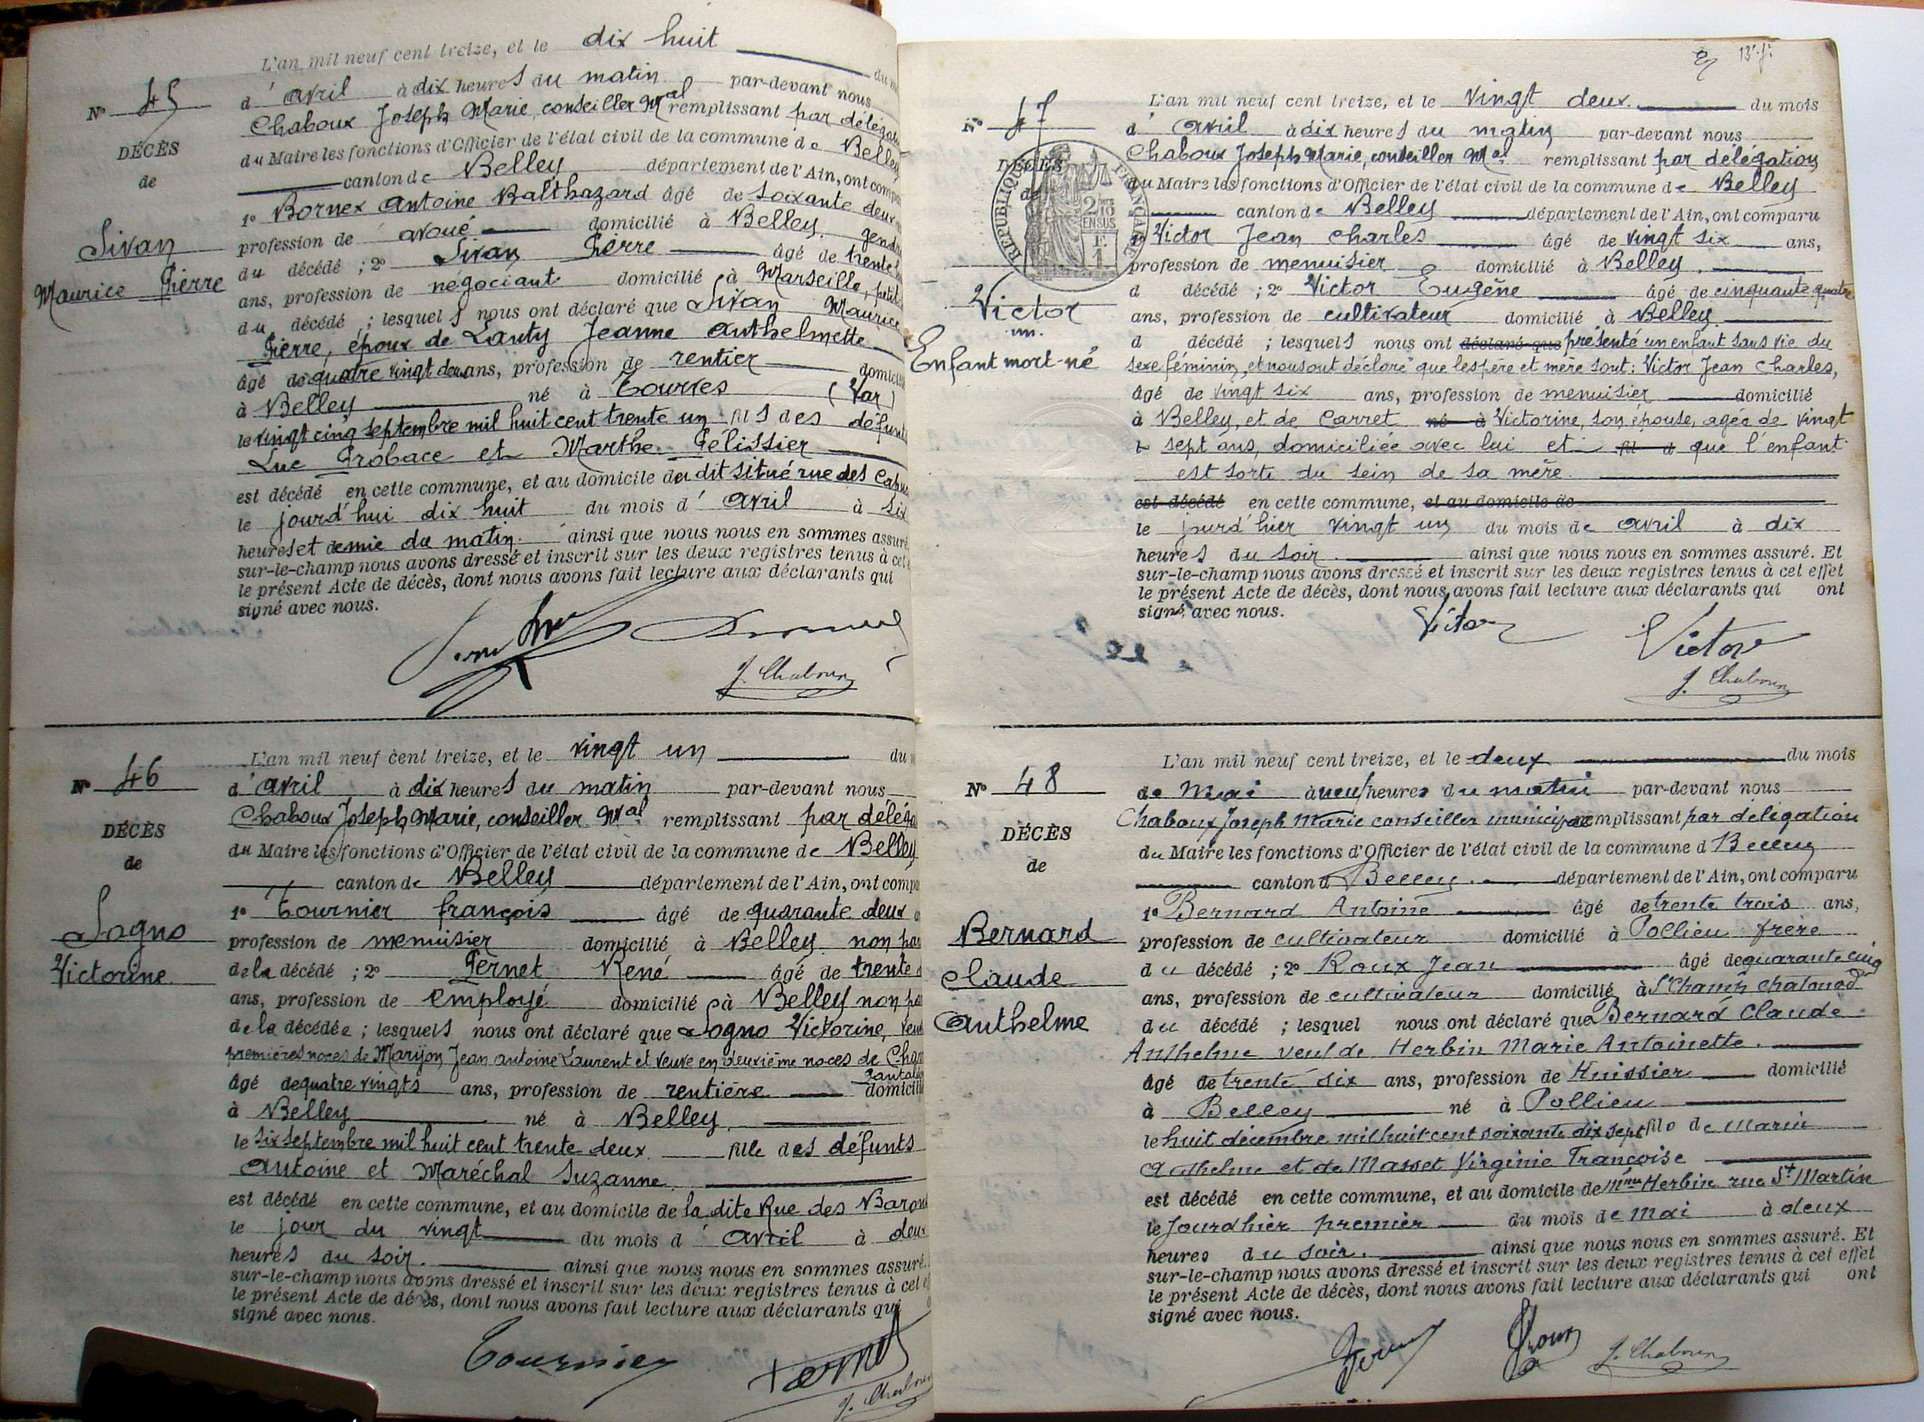 L'an mil neuf cent treize, et le dix huit du
N° 45
d'avril à dix heures du matin par-devant nous
Chaboux Joseph Marie, conseiller Mal remplissant par déléga
du Maire les fonctions d'Officier de l'état civil de la commune de Belley
DÉCÈS
de
canton de Belley département de l'Ain, ont compa
1° Bornex Antoine Balthazard âgé de soixante deux
Sivan
Maurice Pierre
profession de avoué domicilié à Belley, gendre
du décédé ; 2° Sivan Pierre âgé de trente
ans, profession de négociant domicilié à Marseille, petit
du décédé ; lesquels nous ont déclaré que Sivan Maurice
Pierre, époux de Lauty Jeanne Anthelmette
âgé de quatre vingt deux ans, profession de rentier domicilié
à Belley né à Tourves (Var)
le vingt cinq septembre mil huit cent trente un fils des défunts
Luc Probace et Marthe Pélissier
est décédé en cette commune, et au domicile du dit situé rue des
le jourd'hui dix huit du mois d'avril à six
heures et demie du matin. ainsi que nous nous en sommes assuré
sur-le-champ nous avons dressé et inscrit sur les deux registres tenus à cet
le présent Acte de décès, dont nous avons fait lecture aux déclarants qui
signé avec nous.
J. Chaboux
L'an mil neuf cent treize, et le vingt un du
N° 46
d'avril à dix heures du matin par-devant nous
Chaboux Joseph Marie, conseiller Mal remplissant par déléga
DÉCÈS
de
du Maire les fonctions d'Officier de l'état civil de la commune de Belley
canton de Belley département de l'Ain, ont compa
1° Tournier françois âgé de quarante deux
Sogno
Victorine
profession de menuisier domicilié à Belley non pa
de la décédé ; 2° Pernet René âgé de trente
ans, profession de employé domicilié à Belley non pa
de la décédée ; lesquels nous ont déclaré que Sogno Victorine, veuve
premières noces de Marijon Jean Antoine Laurent et veuve en deuxième noces de
âgé de quatre vingts ans, profession de rentière domicilié
à Belley né à Belley,
le six septembre mil huit cent trente deux fille des défunts
Antoine et Maréchal Suzanne
est décédé en cette commune, et au domicile de la dite Rue des Barons
le jour du vingt du mois d'avril à deux
heures du soir. ainsi que nous nous en sommes assuré.
sur-le-champ nous avons dressé et inscrit sur les deux registres tenus à cet
le présent Acte de décès, dont nous avons fait lecture aux déclarants qui
signé avec nous.
Tournier Pernet
J. Chaboux
L'an mil neuf cent treize, et le vingt deux du mois
N° 47
d'avril à dix heures du matin par-devant nous
Chaboux Joseph Marie, conseiller Mal remplissant par délégation
DÉCÈS
de
RÉPUBLIQUE FRANÇAISE
du Maire les fonctions d'Officier de l'état civil de la commune de Belley
canton de Belley département de l'Ain, ont comparu
1° Victor Jean Charles âgé de vingt six ans,
profession de menuisier domicilié à Belley.
Victor
Enfant mort-né
d décédé ; 2° Victor Eugène âgé de cinquante quatre
ans, profession de cultivateur domicilié à Belley
d décédé ; lesquels nous ont déclaré que présenté un enfant sans vie du
sexe féminin, et nous ont déclaré que les père et mère sont : Victor Jean Charles,
âgé de vingt six ans, profession de menuisier domicilié
à Belley, et de Carret né à Victorine, son épouse, agée de vingt
sept ans, domiciliée avec lui et fil d que l'enfant
est sorti du sein de sa mère
est décédé en cette commune, et au domicile de
le jourd'hier vingt un du mois de avril à dix
heures du soir. ainsi que nous nous en sommes assuré. Et
sur-le-champ nous avons dressé et inscrit sur les deux registres tenus à cet effet
le présent Acte de décès, dont nous avons fait lecture aux déclarants qui ont
signé avec nous.
Victor Victor
J. Chaboux
L'an mil neuf cent treize, et le deux du mois
N° 48
de Mai à neuf heures du matin par-devant nous
Chaboux Joseph Marie conseiller municipal remplissant par délégation
DÉCÈS
de
du Maire les fonctions d'Officier de l'état civil de la commune d Belley
canton d Belley département de l'Ain, ont comparu
1° Bernard Antoine âgé de trente trois ans,
Bernard
Claude
Anthelme
profession de cultivateur domicilié à Pollieu frère
du décédé ; 2° Roux Jean âgé de quarante cinq
ans, profession de cultivateur domicilié à St Champ Chatonod
du décédé ; lesquel nous ont déclaré que Bernard Claude
Anthelme veuf de Herbin Marie Antoinette.
âgé de trente six ans, profession de Huissier domicilié
à Belley né à Pollieu
le huit décembre mil huit cent soixante dix sept fils de Marin
Anthelme et de Masset Virginie Françoise
est décédé en cette commune, et au domicile de Mme Herbin rue St Martin
le Jourdhier premier du mois de mai à deux
heures du soir. ainsi que nous nous en sommes assuré. Et
sur-le-champ nous avons dressé et inscrit sur les deux registres tenus à cet effet
le présent Acte de décès, dont nous avons fait lecture aux déclarants qui ont
signé avec nous.
Roux J. Chaboux